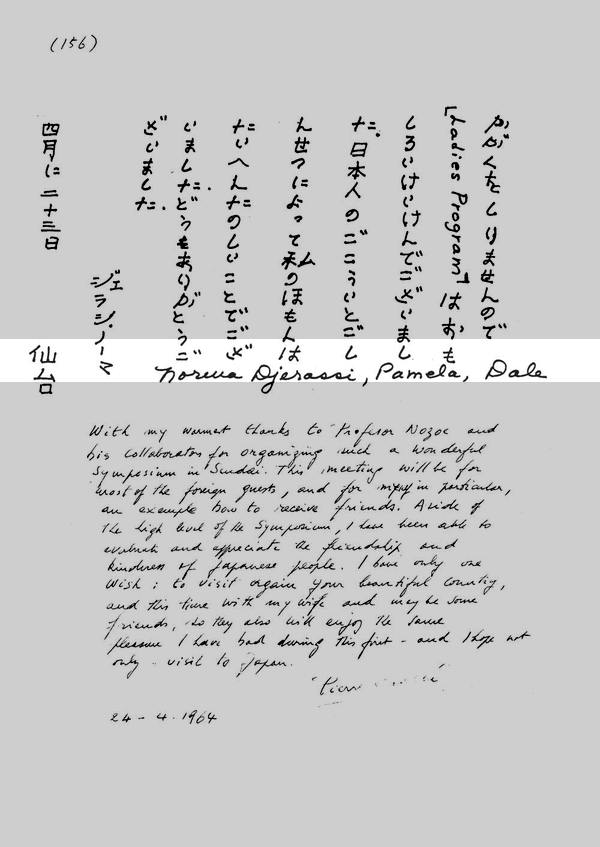 (156)
かがくをしりませんので
「Ladies Program」はおも
しろいけいけんでございまし
た。日本人のごこういとごし
んせつによって私のほもんは
たいへんたのしいことでござ
いました。どうもありがとうご
ざいました。
ジェラシ・ノーマ
四月に二十三日 仙台
Norma Djerassi, Pamela, Dale
With my warmest thanks to Profesor Nozoe and
his collaborators for organizing such a wonderful
Symposium in Sendai. This meeting will be for
most of the foreign guests, and for myself in particular,
an example how to receive friends. Aside of
the high level of the Symposium, I have been able to
evaluate and appreciate the friendship and
kindness of Japanese people. I have only one
wish : to visit again your beautiful country,
and this time with my wife and may be some
friends, so they also will enjoy the same
pleasure I have had during this first - and I hope not
only - visit to Japan.
Pierre
24 - 4. 1964